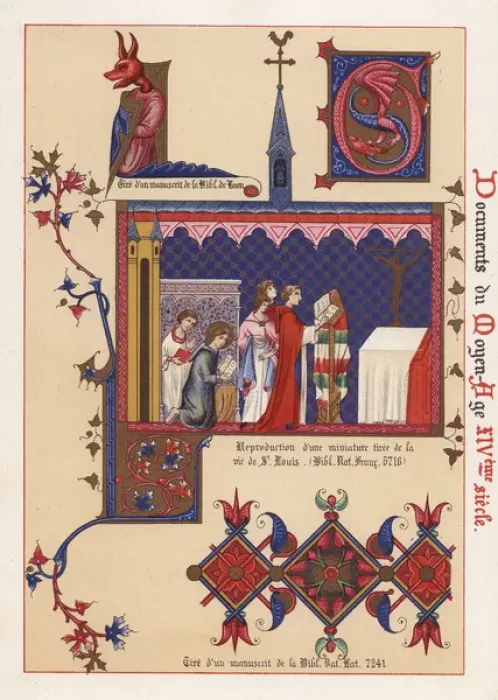 Tiré d'un manuscrit de la Bibl. de Laon
Reproduction d'une miniature tirée de la
vie de St. Louis. (Bibl. Nat. Franç. 5716)
Tiré d'un manuscrit de la Bibl. Nat. Lat. 7241
Documents du Moyen-Age XIVème siècle.